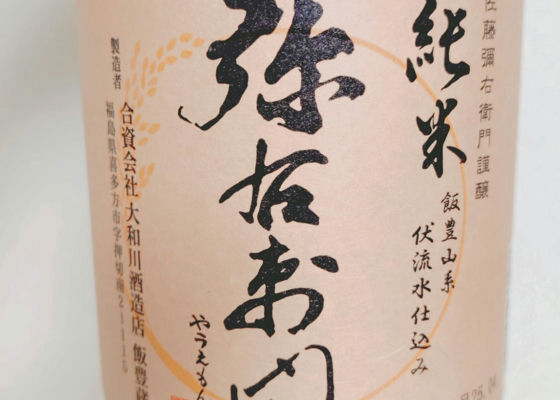 佐藤彌右衛門謹醸
純米
飯豊山系
伏流水仕込み
弥右衛門
やうえもん
製造者
合資会社 大和川酒造店 飯豊蔵
福島県喜多方市字押切南2
25.04